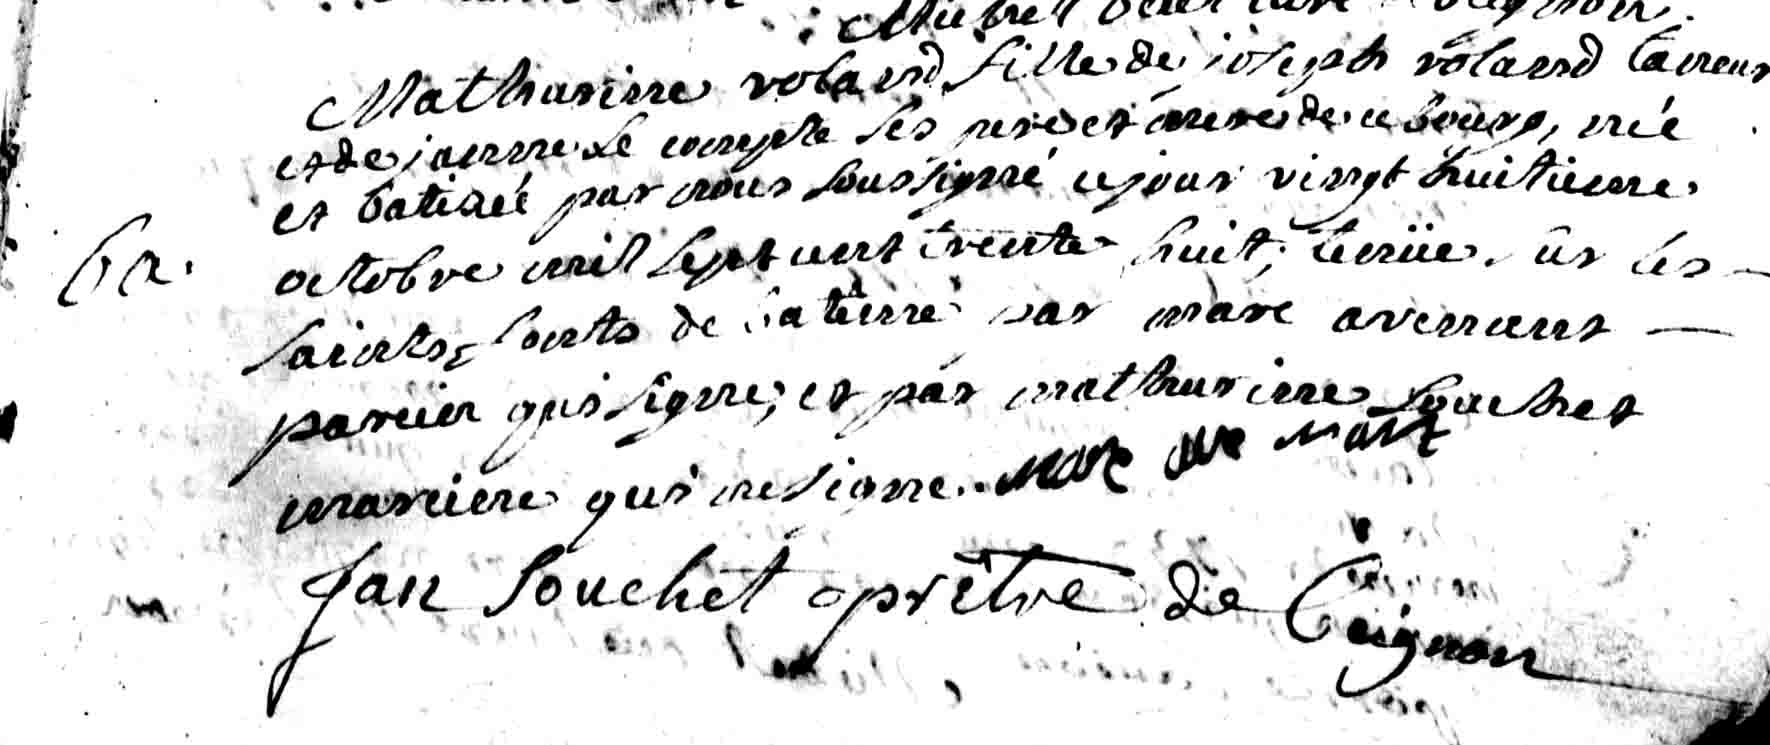 Mathurinne roland fille de joseph roland
et de janne le compte ses pere et mere de ce bourg, née
et batisée par nous soussigné ce jour vingt huitieme
ba. octobre mil sept cent trente huit, tenüe sur les
saints fonts de bateme par marc avenant
parein qui signe, et par mathurinne souchet
mareine qui ne signe. marc
Jan Souchet prêtre de Guignon